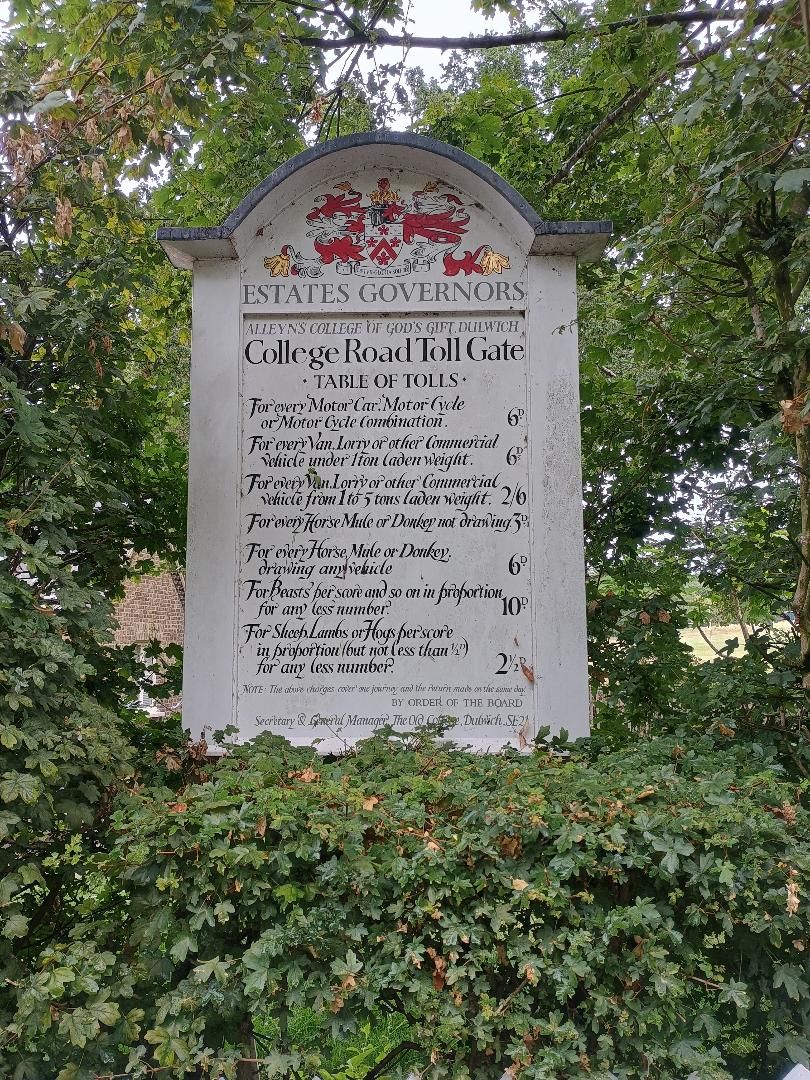 ESTATES GOVERNORS
ALLEYN'S COLLEGE OF GOD'S GIFT, DULWICH
College Road Toll Gate
· TABLE OF TOLLS ·
For every Motor Car, Motor Cycle
or Motor Cycle Combination. 6D
For every Van, Lorry or other Commercial
vehicle under 1 ton laden weight. 6D
For every Van, Lorry or other Commercial
vehicle from 1 to 5 tons laden weight. 2/6
For every Horse Mule or Donkey not drawing 3D
For every Horse, Mule or Donkey,
drawing any vehicle 6D
For Beasts per score and so on in proportion
for any less number. 10D
For Sheep, Lambs or Hogs per score
in proportion (but not less than ½D)
for any less number. 2½D
NOTE: The above charges cover one journey and the return made on the same day
BY ORDER OF THE BOARD
Secretary & General Manager, The Old College, Dulwich, SE21